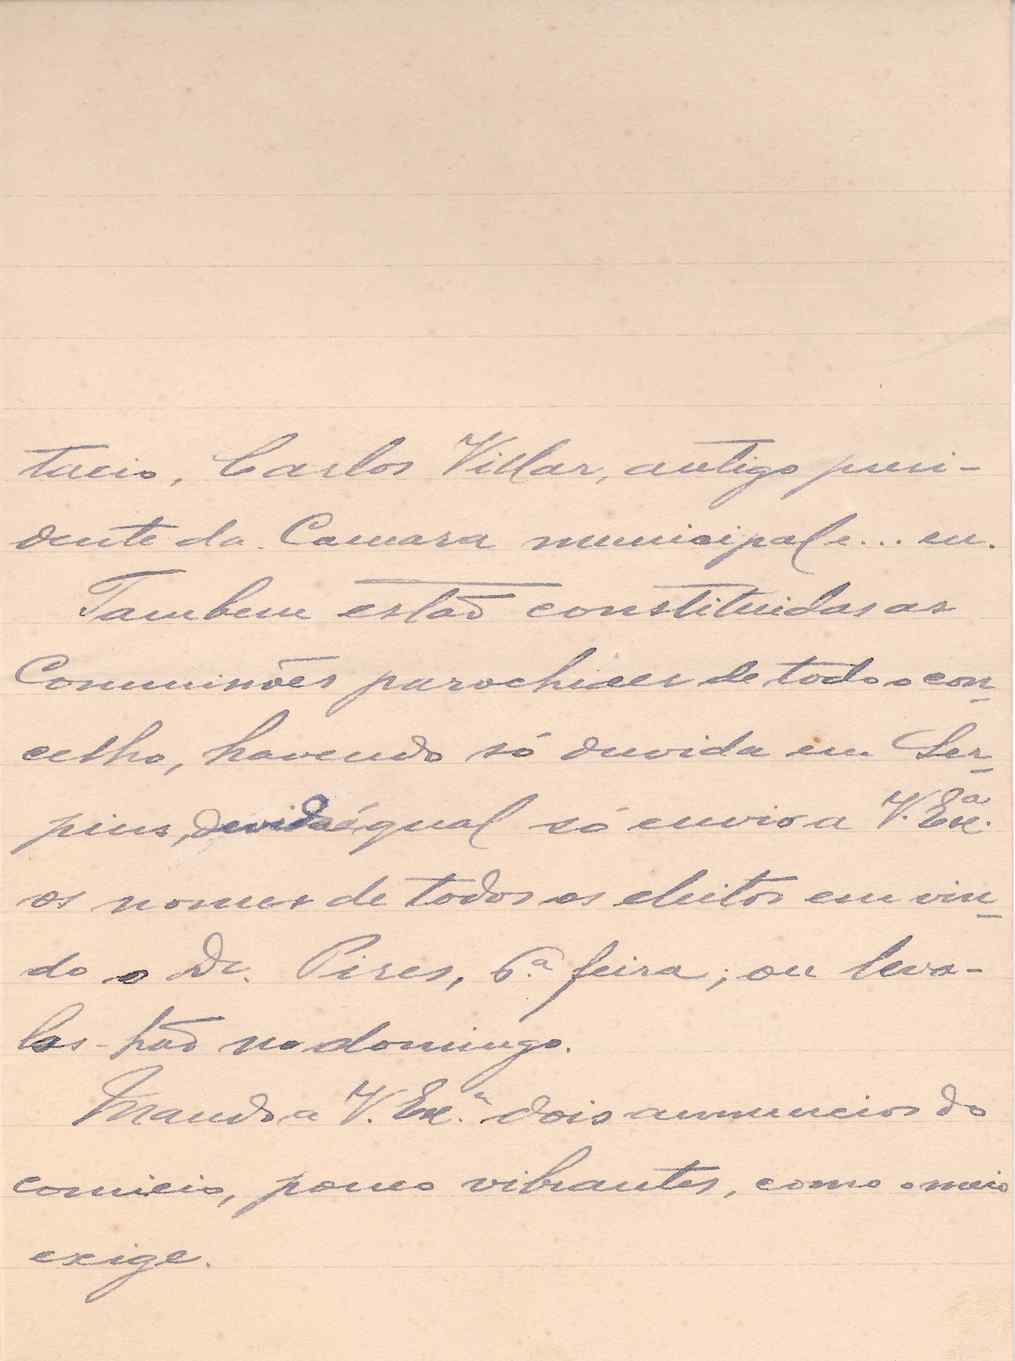 tacio, Carlos Villar, antigo presi-
dente da Camara municipal e... eu.
Tambem estão constituidas as
Commissões parochiaes de todo o con-
celho, havendo só duvida em Ser-
pins, devida á qual só envio a V. Exª.
os nomes de todos os eleitos em vin-
do o Dr. Pires, 6.ª feira; ou leva-
los-hão no domingo.
Mando a V. Ex.ª dois annuncios do
comicio, pouco vibrantes, como o meio
exige.